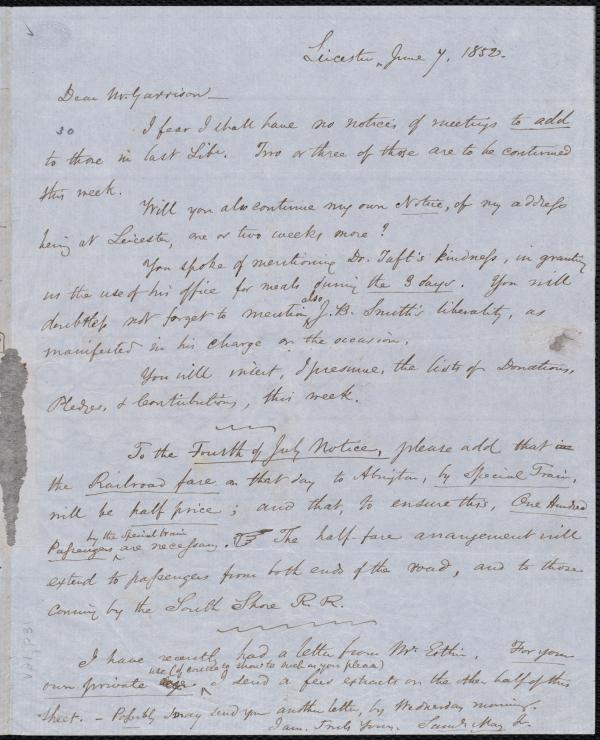 Leicester, June 7, 1852.
Dear Mr. Garrison—
30
I fear I shall have no notices of meetings to add
to those in last Libr. Two or three of those are to be continued
this week.
Will you also continue my own Notice, of my address
being at Leicester, one or two weeks more?
You spoke of mentioning Dr. Taft's kindness, in granting
us the use of his office for meals during the 3 days. You will
doubtless not forget to mention also J. B. Smith's liberality, as
manifested in his charge on the occasion.
You will insert, I presume, the lists of Donations,
Pledges, & Contributions, this week.
To the Fourth of July Notice, please add that
the Railroad fare on that day to Abington, by Special Train,
will be half price; and that, to ensure this, One Hundred
Passengers by the Special train are necessary. ☞ The half-fare arrangement will
extend to passengers from both ends of the road, and to those
coming by the South Shore R. R.
I have recently had a letter from Mr. Estlin. For your
own private use (of course to show to such as you please) I send a few extracts on the other half of this
sheet. — Possibly I may send you another letter, by Wednesday morning.
I am, Truly Yours, Saml. May Jr.